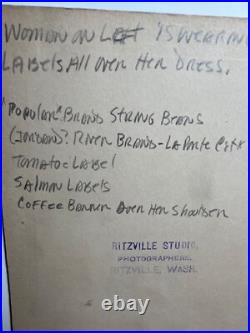 WOMAN ON LEFT IS WEARIN
LABELS ALL OVER HER DRESS.
"POPULAR" BRAND STRING BEANS
RIVER BRAND - LA PORTE CITY
TOMATO LABEL
SALMON LABELS
COFFEE BANNER OVER HER SHOULDER
RITZVILLE STUDIO,
PHOTOGRAPHERS,
RITZVILLE, WASH.